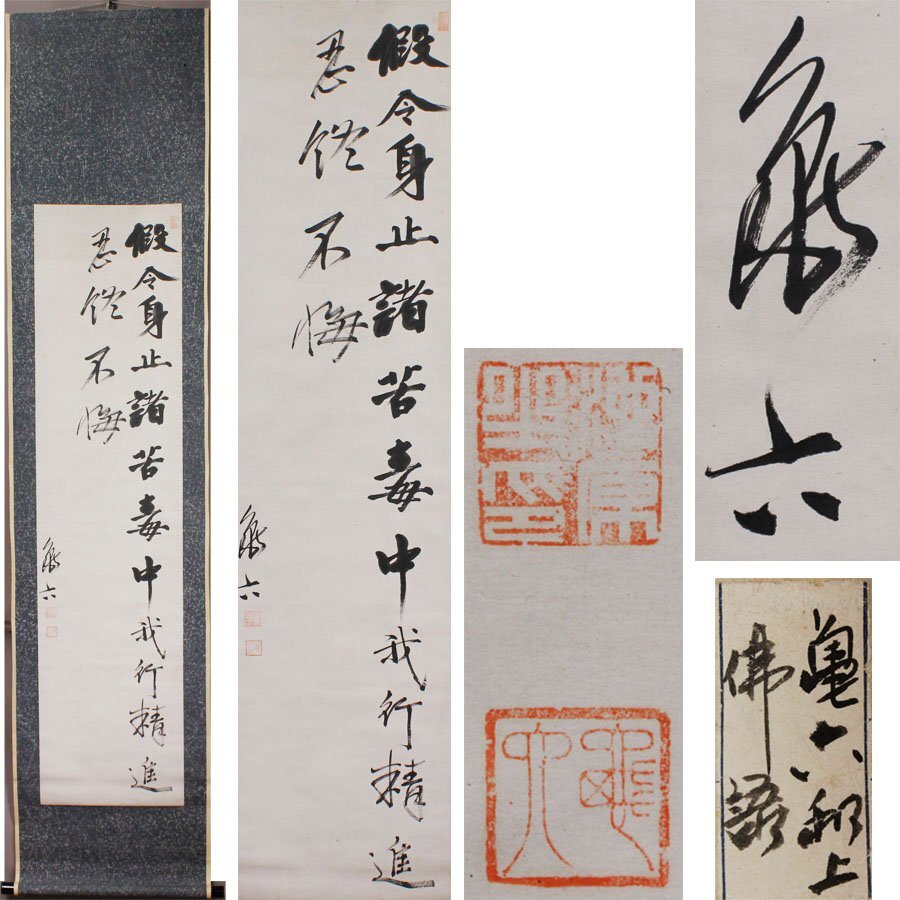 假令身止諸苦毒中我行精進
忍終不悔
龜六
假令身止諸苦毒中我行精進
忍終不悔
龜六
龜六
龜六
亀六和上
佛語